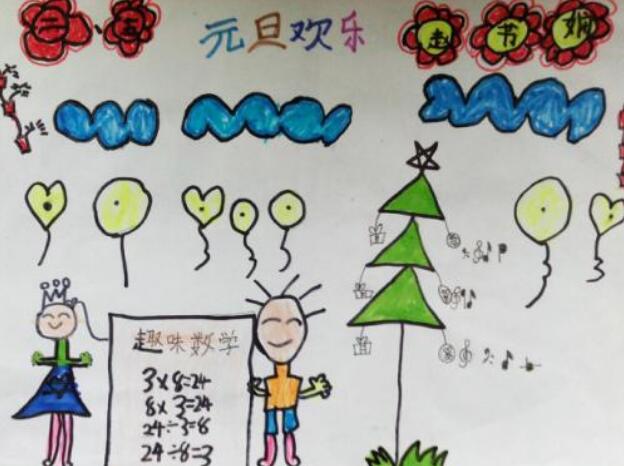 二小五
元旦欢乐
赵节娴
趣味数学
3×8=24
8×3=24
24÷3=8
24÷8=3